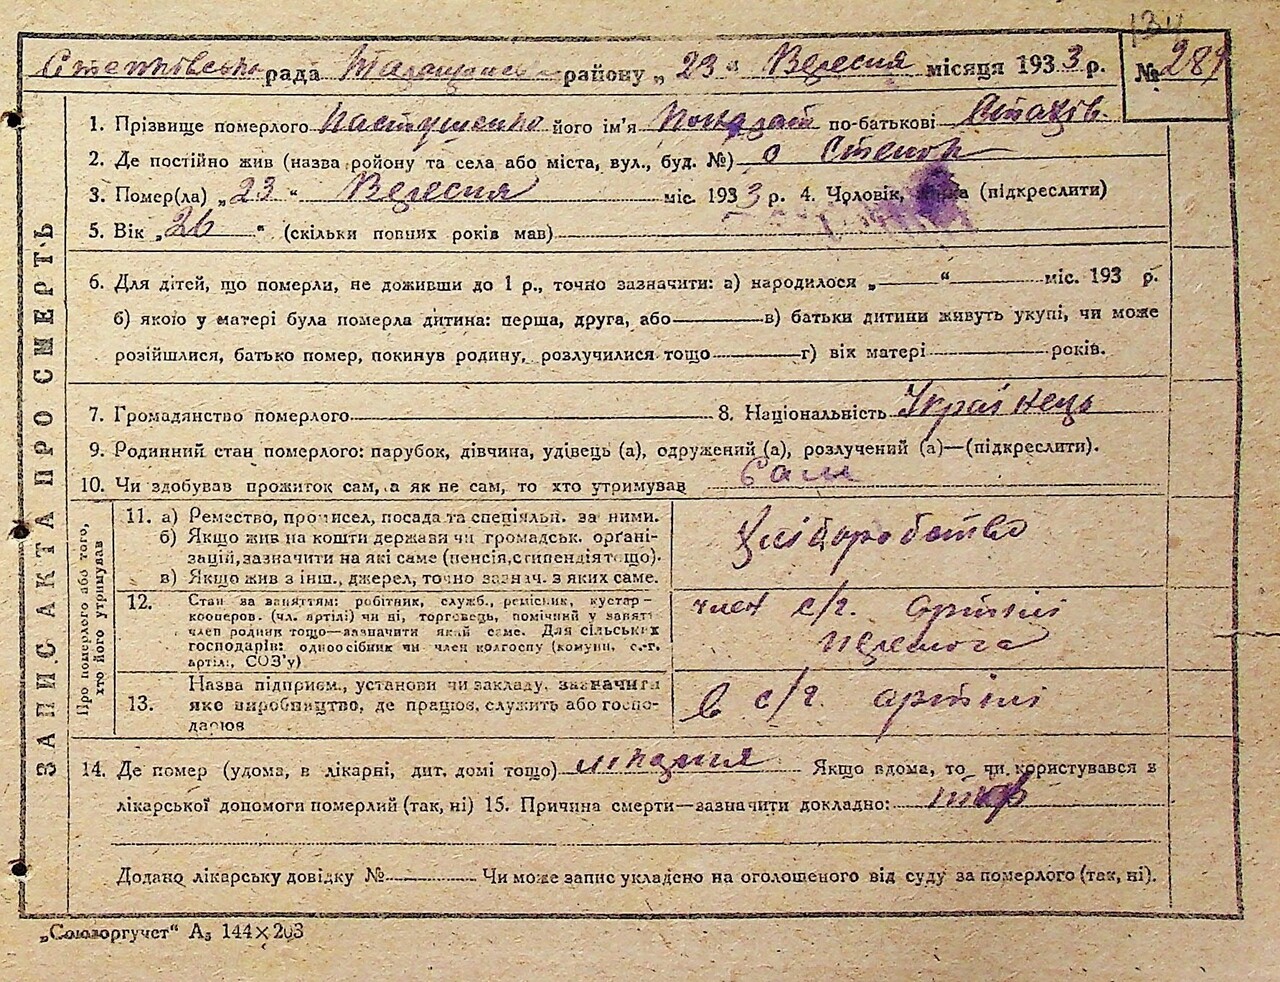 134
Степківська рада Таращанськ району „ 23 “ Вересня місяця 1933 р. № 289
ЗАПИС АКТА ПРО СМЕРТЬ
1. Прізвище померлого Пастушенко його ім'я по-батькові
2. Де постійно жив (назва ройону та села або міста, вул., буд. №) с Степок
3. Помер(ла) „ 23 “ Вересня міс. 1933 р. 4. Чоловік, жінка (підкреслити)
5. Вік „ 26 “ (скільки повних років мав)
6. Для дітей, що померли, не доживши до 1 р., точно зазначити: а) народилося „ “ міс. 193 р.
б) якою у матері була померла дитина: перша, друга, або в) батьки дитини живуть укупі, чи може
розійшлися, батько помер, покинув родину, розлучилися тощо г) вік матері років.
7. Громадянство померлого 8. Національність Українець
9. Родинний стан померлого: парубок, дівчина, удівець (а), одружений (а), розлучений (а)—(підкреслити).
10. Чи здобував прожиток сам, а як не сам, то хто утримував Сам
Про померлого або того, хто його утримував
11. а) Ремество, промисел, посада та спеціяльн. за ними.
б) Якщо жив на кошти держави чи громадськ. орґані-
зацій, зазначити на які саме (пенсія, стипендія тощо).
в) Якщо жив з інш., джерел, точно зазнач. з яких саме.
Хліборобство
12. Стан за заняттям: робітник, служб., ремісник, кустар-
кооперов. (чл. артілі) чи ні, торговець, помічний у занятт
член родини тощо—зазначити який саме. Для сільських
господарів: одноосібник чи член колгоспу (комуни, с.-г.
артілі, СОЗ'у)
член с/г. артілі
перемога
13. Назва підприєм., установи чи закладу, зазначити
яке виробництво, де працює, служить або госпо-
дарює
в с/г. артілі
14. Де помер (удома, в лікарні, дит. домі тощо) лікарня Якщо вдома, то чи користувався з
лікарської допомоги померлий (так, ні) 15. Причина смерти—зазначити докладно: тиф
Додано лікарську довідку № Чи може запис укладєно на оголошеного від суду за померлого (так, ні).
„Союзоргучет“ А₅ 144×203